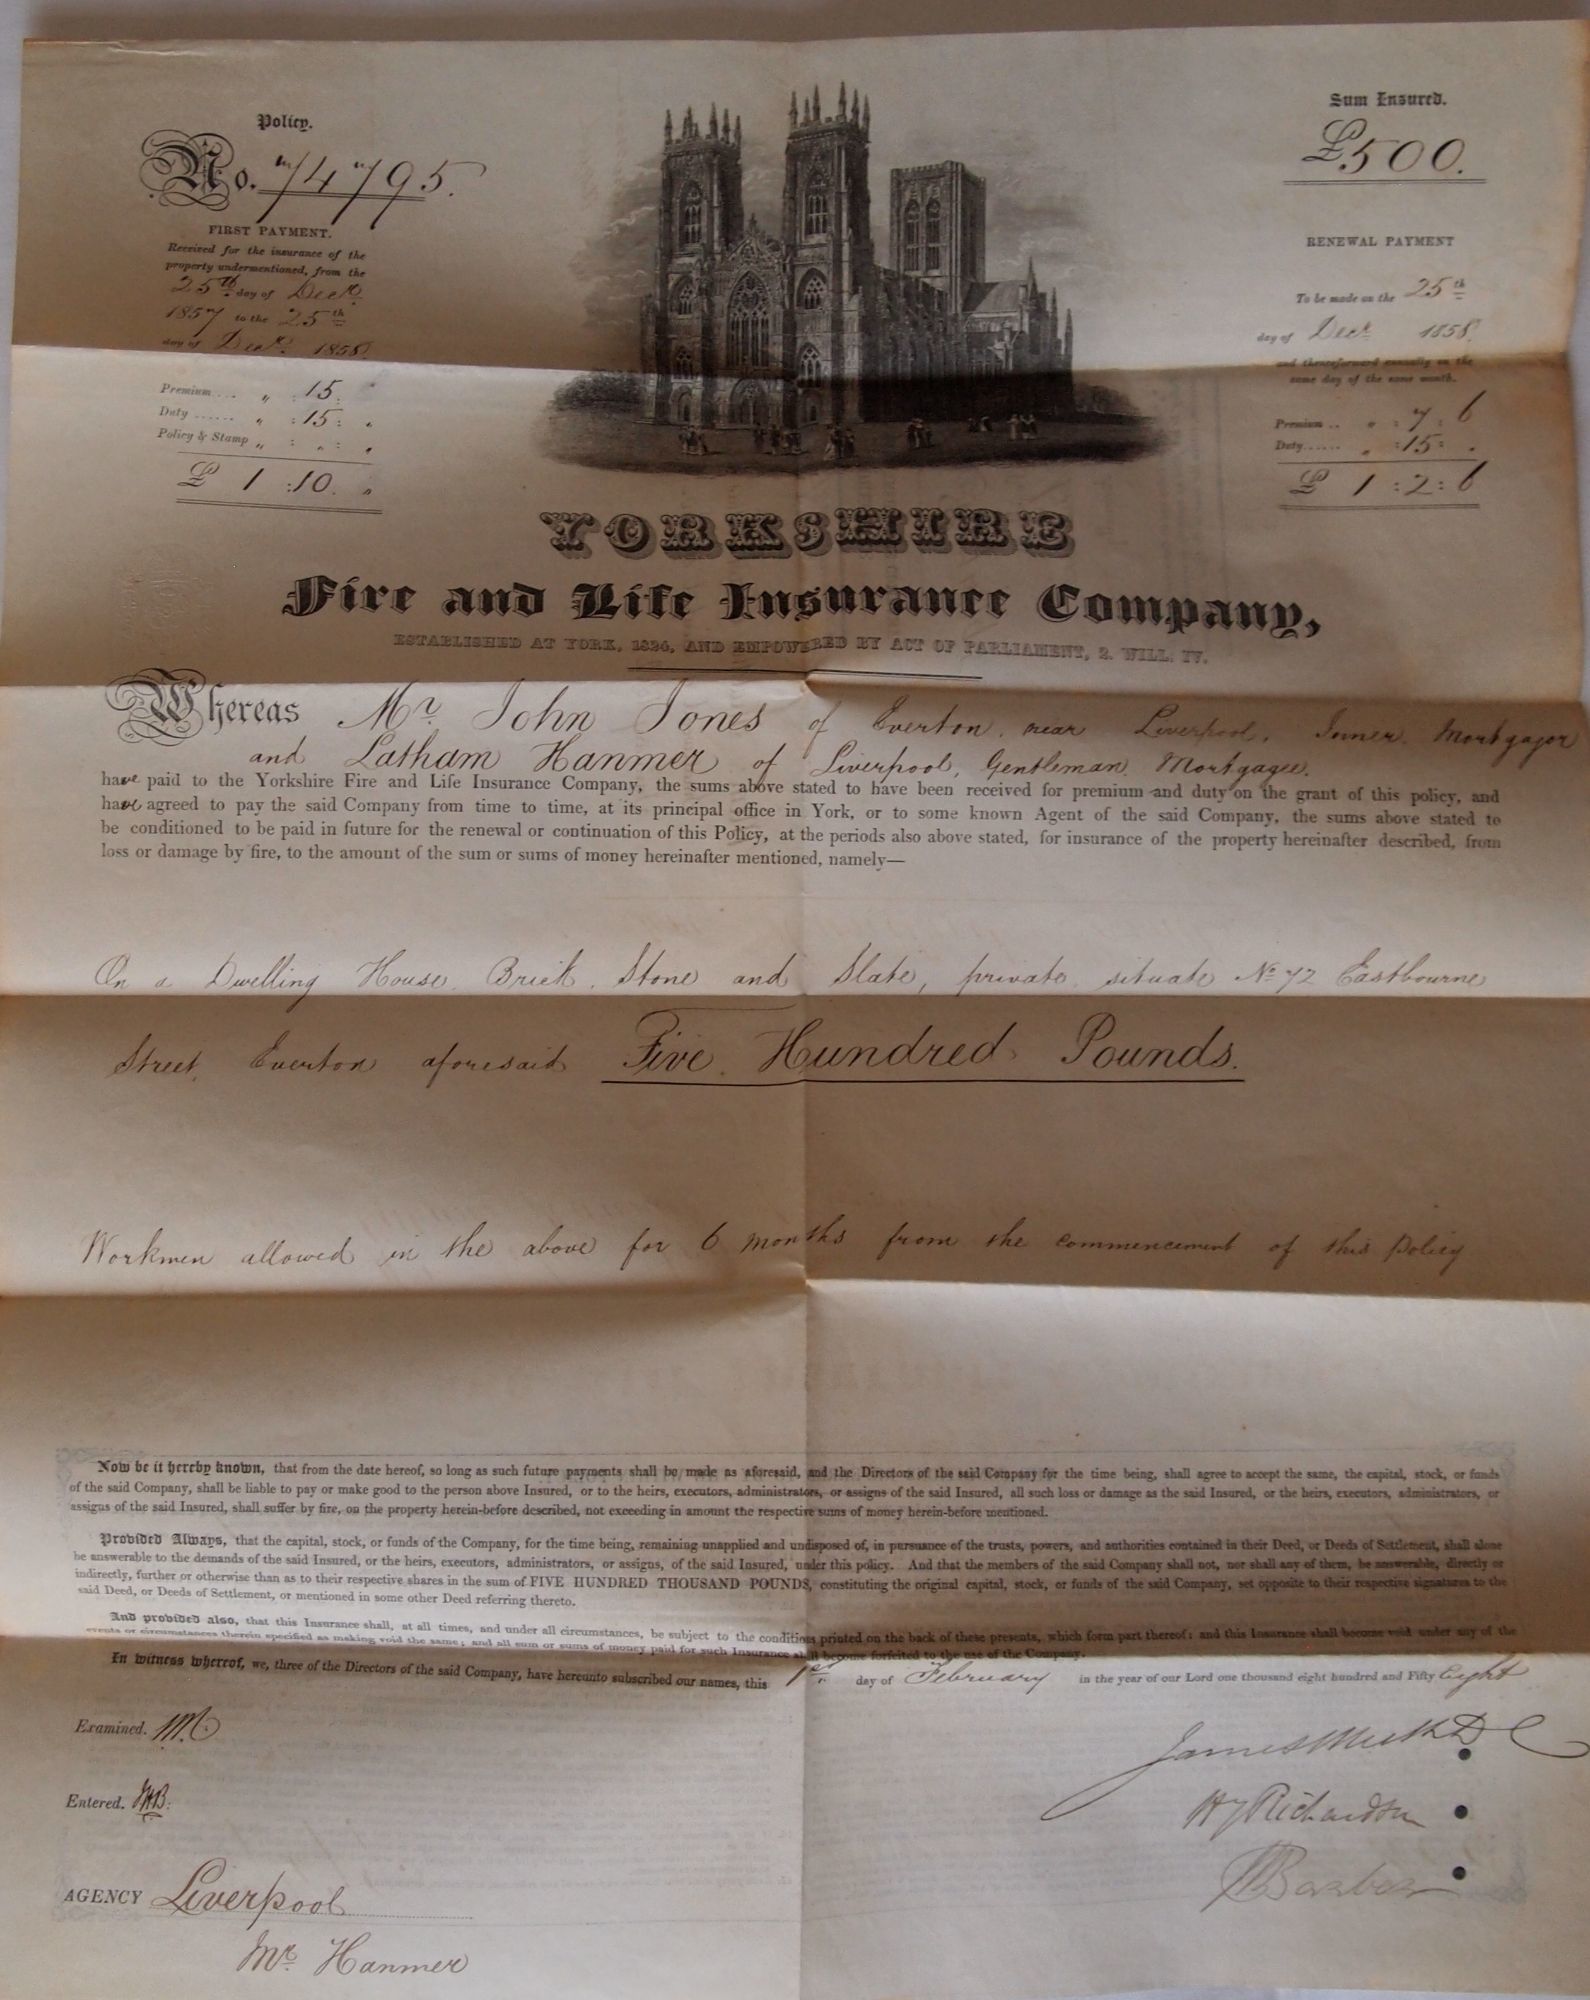 Policy.
No. 74795.
FIRST PAYMENT.
Received for the insurance of the
property undermentioned, from the
25th day of Decr
1857 to the 25th
day of Decr. 1858.
Premium.... " : 15 : "
Duty...... " : 15 : "
Policy & Stamp " : " : "
£ 1 : 10 . "
Sum Insured.
£500.
RENEWAL PAYMENT
To be made on the 25th
day of Decr 1858.
and thenceforward annually on the
same day of the same month.
Premium .. " : 7 : 6
Duty...... " : 15 : "
£ 1 : 2 : 6
YORKSHIRE
Fire and Life Insurance Company,
ESTABLISHED AT YORK, 1824, AND EMPOWERED BY ACT OF PARLIAMENT, 2. WILL. IV.
Whereas Mr. John Jones of Everton, near Liverpool, Joiner, Mortgagor
and Latham Hanmer of Liverpool, Gentleman, Mortgagee.
have paid to the Yorkshire Fire and Life Insurance Company, the sums above stated to have been received for premium and duty on the grant of this policy, and
have agreed to pay the said Company from time to time, at its principal office in York, or to some known Agent of the said Company, the sums above stated to
be conditioned to be paid in future for the renewal or continuation of this Policy, at the periods also above stated, for insurance of the property hereinafter described, from
loss or damage by fire, to the amount of the sum or sums of money hereinafter mentioned, namely—
On a Dwelling House, Brick, Stone and Slate, private, situate No 72 Eastbourne
Street, Everton aforesaid Five Hundred Pounds.
Workmen allowed in the above for 6 months from the commencement of this Policy
Now be it hereby known, that from the date hereof, so long as such future payments shall be made as aforesaid, and the Directors of the said Company for the time being, shall agree to accept the same, the capital, stock, or funds
of the said Company, shall be liable to pay or make good to the person above Insured, or to the heirs, executors, administrators, or assigns of the said Insured, all such loss or damage as the said Insured, or the heirs, executors, administrators, or
assigns of the said Insured, shall suffer by fire, on the property herein-before described, not exceeding in amount the respective sums of money herein-before mentioned.
Provided Always, that the capital, stock, or funds of the Company, for the time being, remaining unapplied and undisposed of, in pursuance of the trusts, powers, and authorities contained in their Deed, or Deeds of Settlement, shall alone
be answerable to the demands of the said Insured, or the heirs, executors, administrators, or assigns, of the said Insured, under this policy. And that the members of the said Company shall not, nor shall any of them, be answerable, directly or
indirectly, further or otherwise than as to their respective shares in the sum of FIVE HUNDRED THOUSAND POUNDS, constituting the original capital, stock, or funds of the said Company, set opposite to their respective signatures to the
said Deed, or Deeds of Settlement, or mentioned in some other Deed referring thereto.
And provided also, that this Insurance shall, at all times, and under all circumstances, be subject to the conditions printed on the back of these presents, which form part thereof: and this Insurance shall become void under any of the
events or circumstances therein specified as making void the same; and all sum or sums of money paid for such Insurance shall become forfeited to the use of the Company.
In witness whereof, we, three of the Directors of the said Company, have hereunto subscribed our names, this 1st day of February in the year of our Lord one thousand eight hundred and Fifty Eight
Examined.
James Meek
Entered.
Richardson
Barber
AGENCY Liverpool
Mr. Hanmer